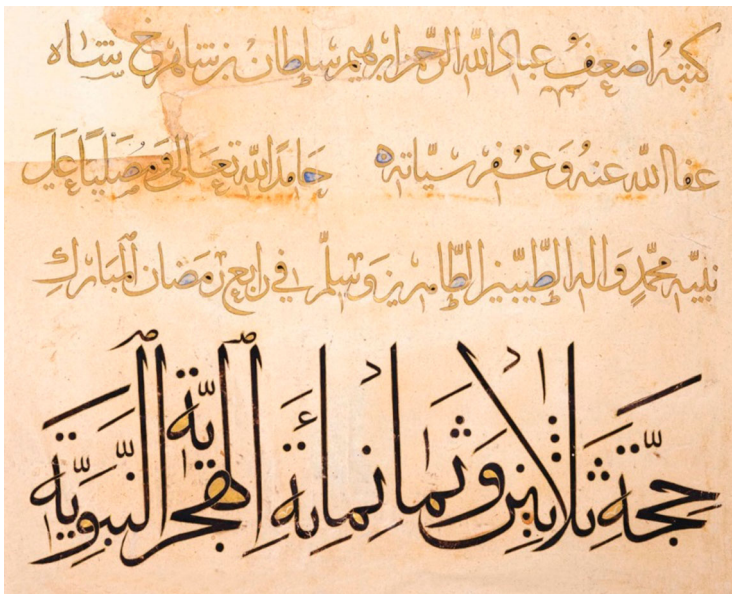 كتبه اضعف عباد الله الرحمن ابرهيم سلطان بن شاهرخ شاه
عفا الله عنه وغفر سيّاته حامدًا لله تعالى ومصليًا على
نبيّه محمّدٍ واله الطّيّبين الطّاهرين وسلّم في رابع رمضان المبارك
حجّة ثلاثين وثمانمائة الهجريّة النّبويّة